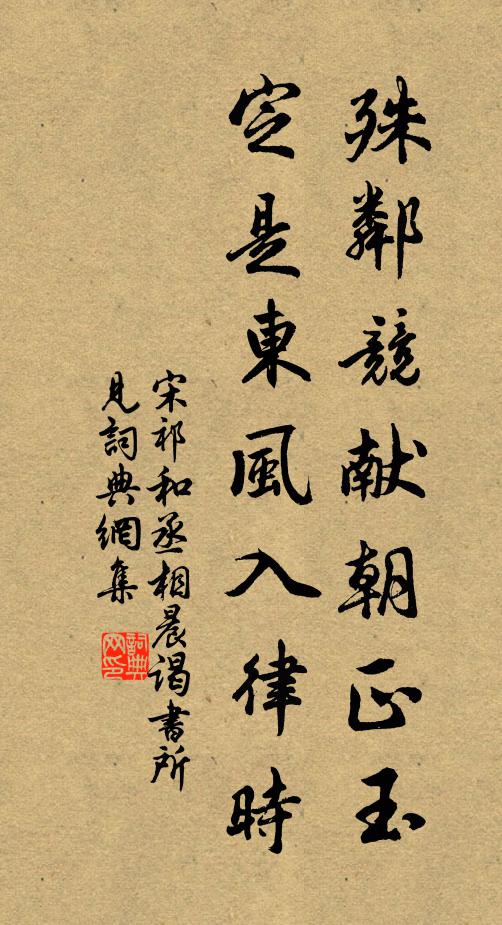 殊鄰競献朝正玉
定是東風入律時
宋祁和丞相晨谒書所
見詞典網集
詞典
网印